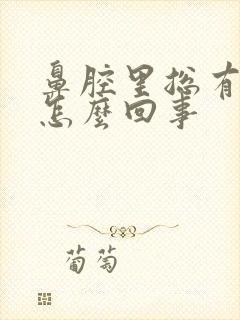 鼻腔里總有
怎麼回事
葡萄